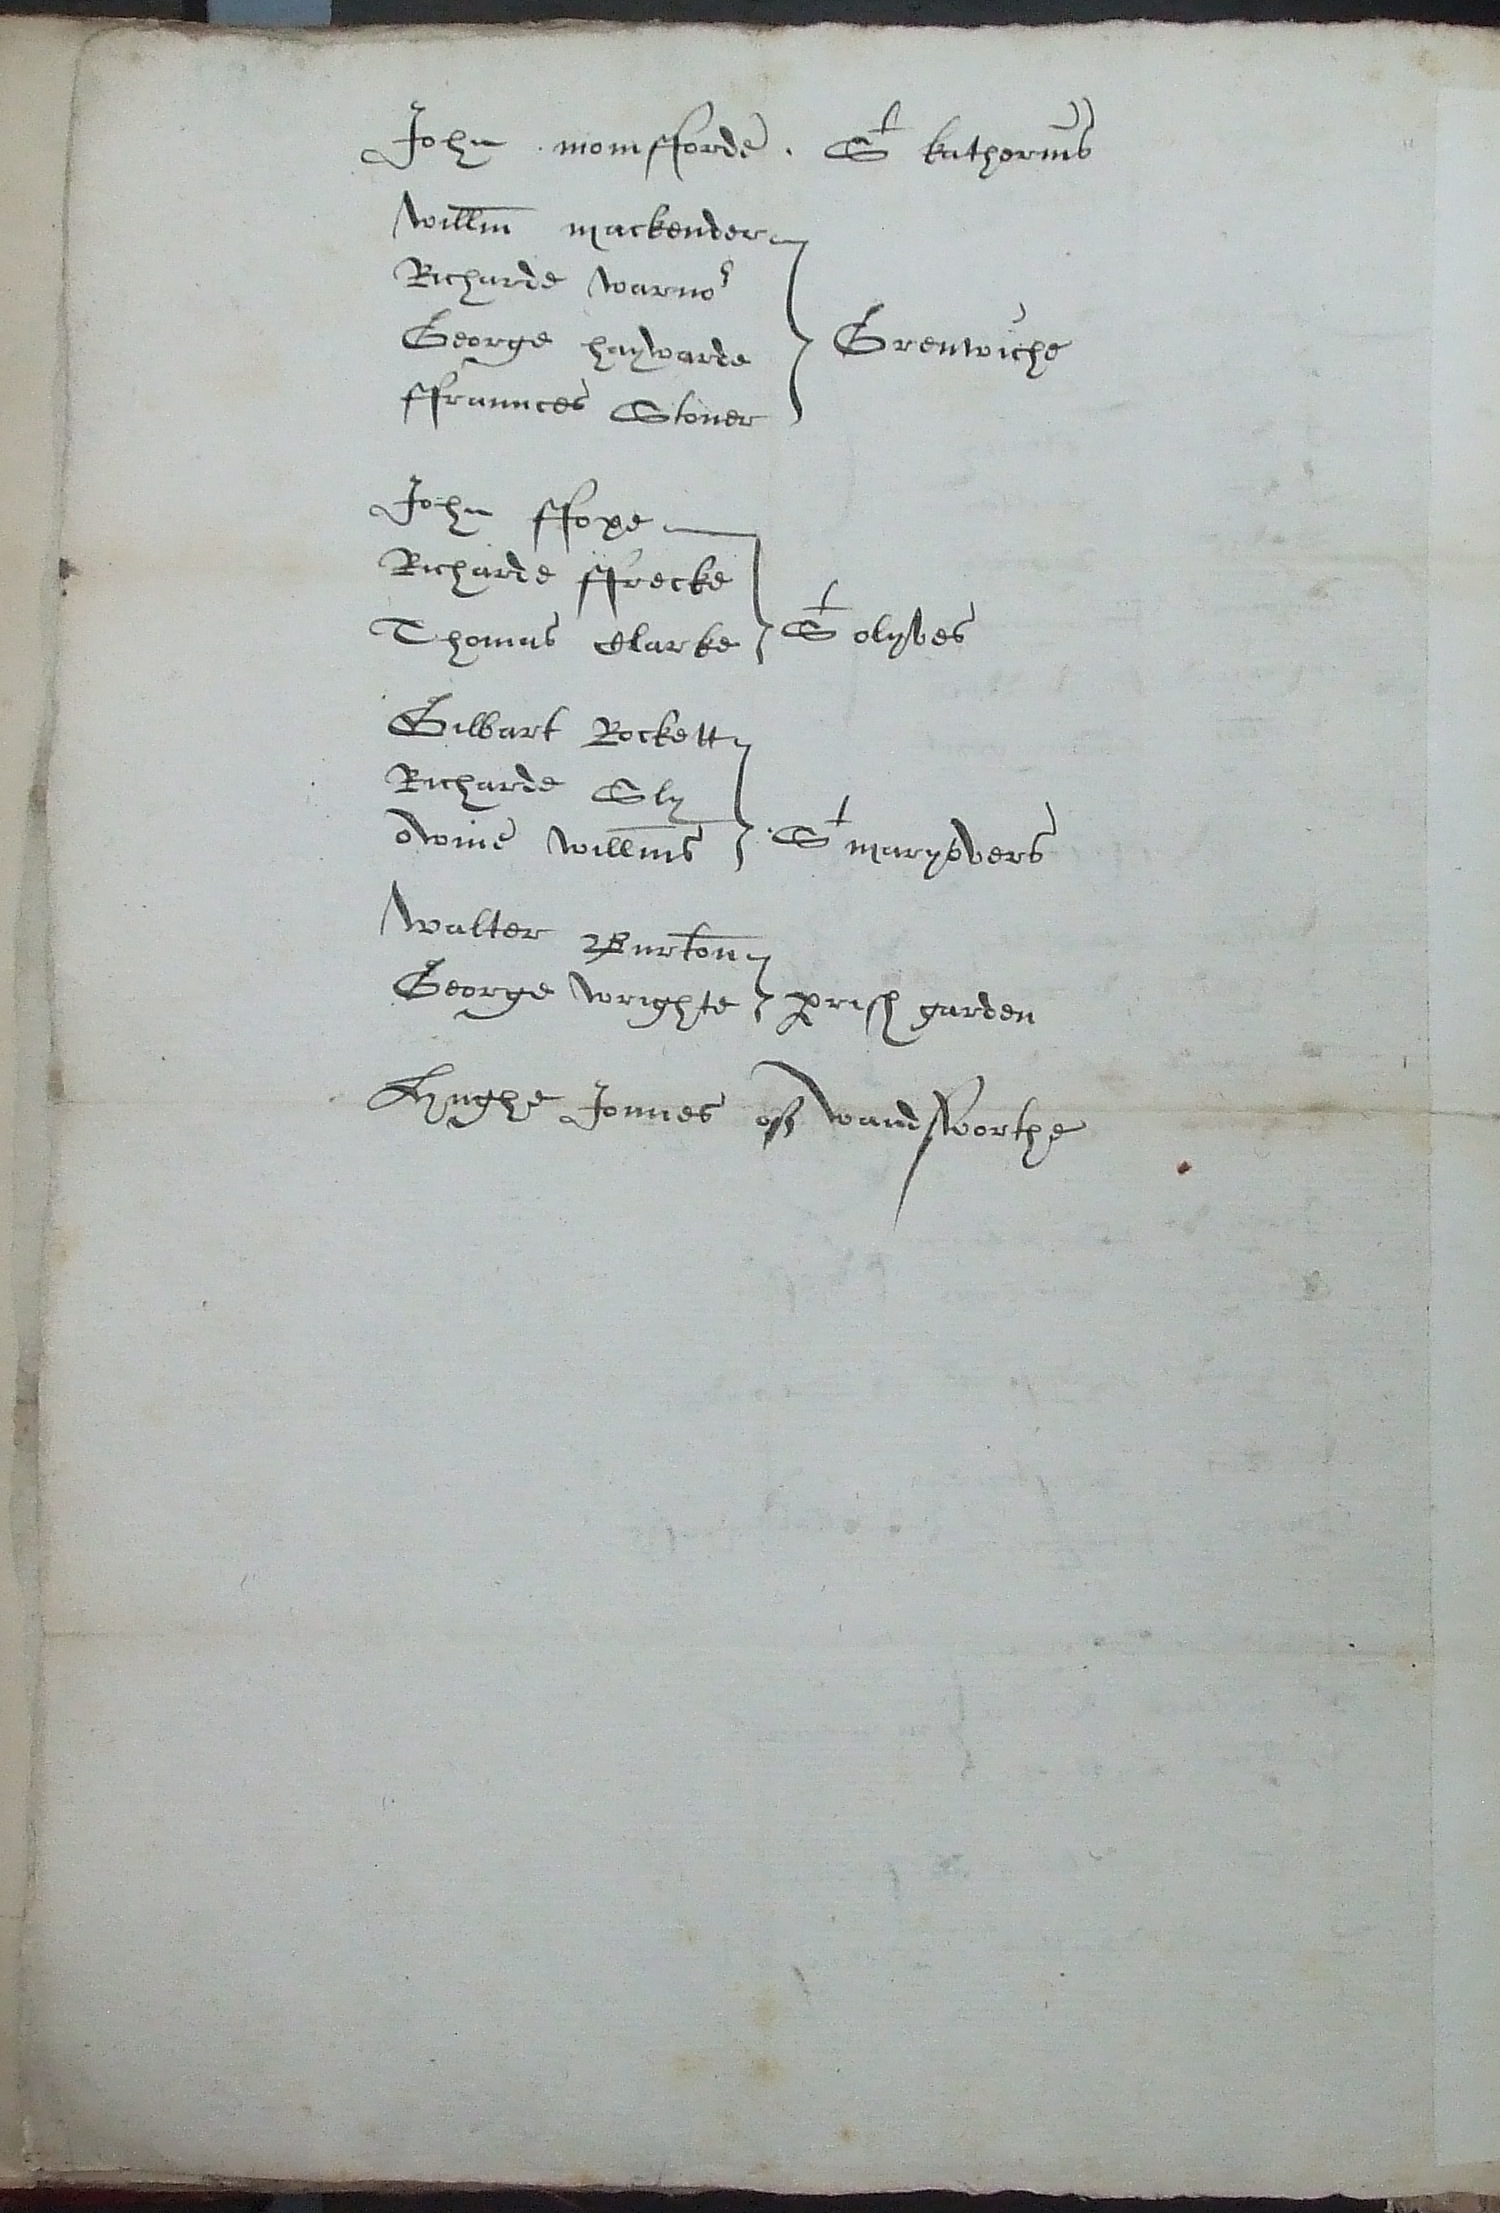 John momfforde . St katherins
Willm mackender
Richarde warno
George haywarde } Grenwiche
ffraunces Stoner
John ffoxe
Richarde ffrecke
Thomas Clarke } St olyves
Gilbart Rockett
Richarde Sly
owine Willms } St maryovers
Walter Burton
George wrighte } prish garden
Hughe Jonnes of wandsworthe